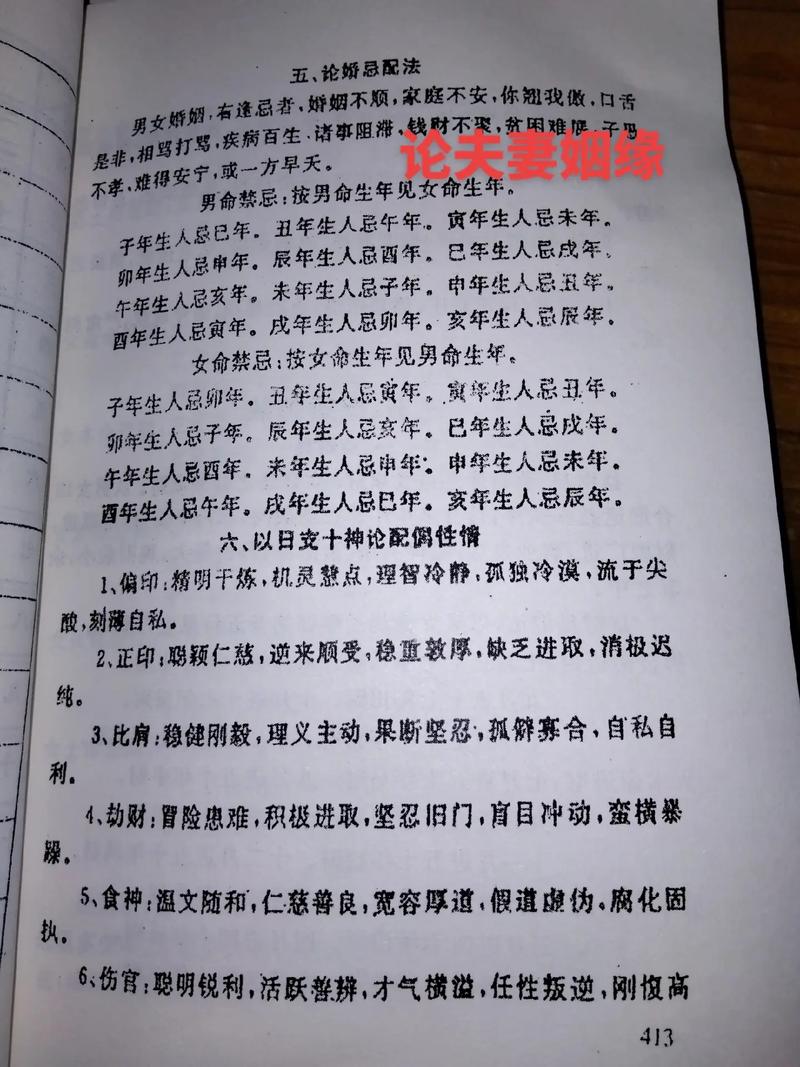 五、论婚忌配法
男女婚姻，右逢忌者，婚姻不顺，家庭不安，你翘我傲，口舌
是非，相骂打骂，疾病百生、诸事阻滞，钱财不聚，贫困难
不孝，难得安宁，或一方早夭。
论夫妻姻缘
男命禁忌：按男命生年见女命生年。
子年生人忌巳年。丑年生人忌午年。寅年生人忌未年。
卯年生人忌申年。辰年生人忌酉年。巳年生人忌戌年。
午年生人忌亥年。未年生人忌子年。申年生人忌丑年。
酉年生人忌寅年。戌年生人忌卯年。亥年生人忌辰年。
女命禁忌：按女命生年见男命生年。
子年生人忌卯年。丑年生人忌寅年。寅年生人忌丑年。
卯年生人忌子年。辰年生人忌亥年。巳年生人忌戌年。
午年生人忌酉年。未年生人忌申年。申年生人忌未年。
酉年生人忌午年。戌年生人忌巳年。亥年生人忌辰年。
六、以日支十神论配偶性情
1、偏印：精明干炼，机灵慧点，理智冷静，孤独冷漠，流于尖
酸，刻薄自私。
2、正印：聪颖仁慈，逆来顺受，稳重敦厚，缺乏进取，消极迟
纯。
3、比肩：稳健刚毅，理义主动，果断坚忍，孤僻寡合，自私自
利。
4、劫财：冒险患难，积极进取，坚忍旧门，盲目冲动，蛮横暴
躁。
5、食神：温文随和，仁慈善良，宽容厚道，假道虚伪、腐化固
执。
6、伤官：聪明锐利，活跃善辨，才气横溢，任性叛逆，刚愎高
413